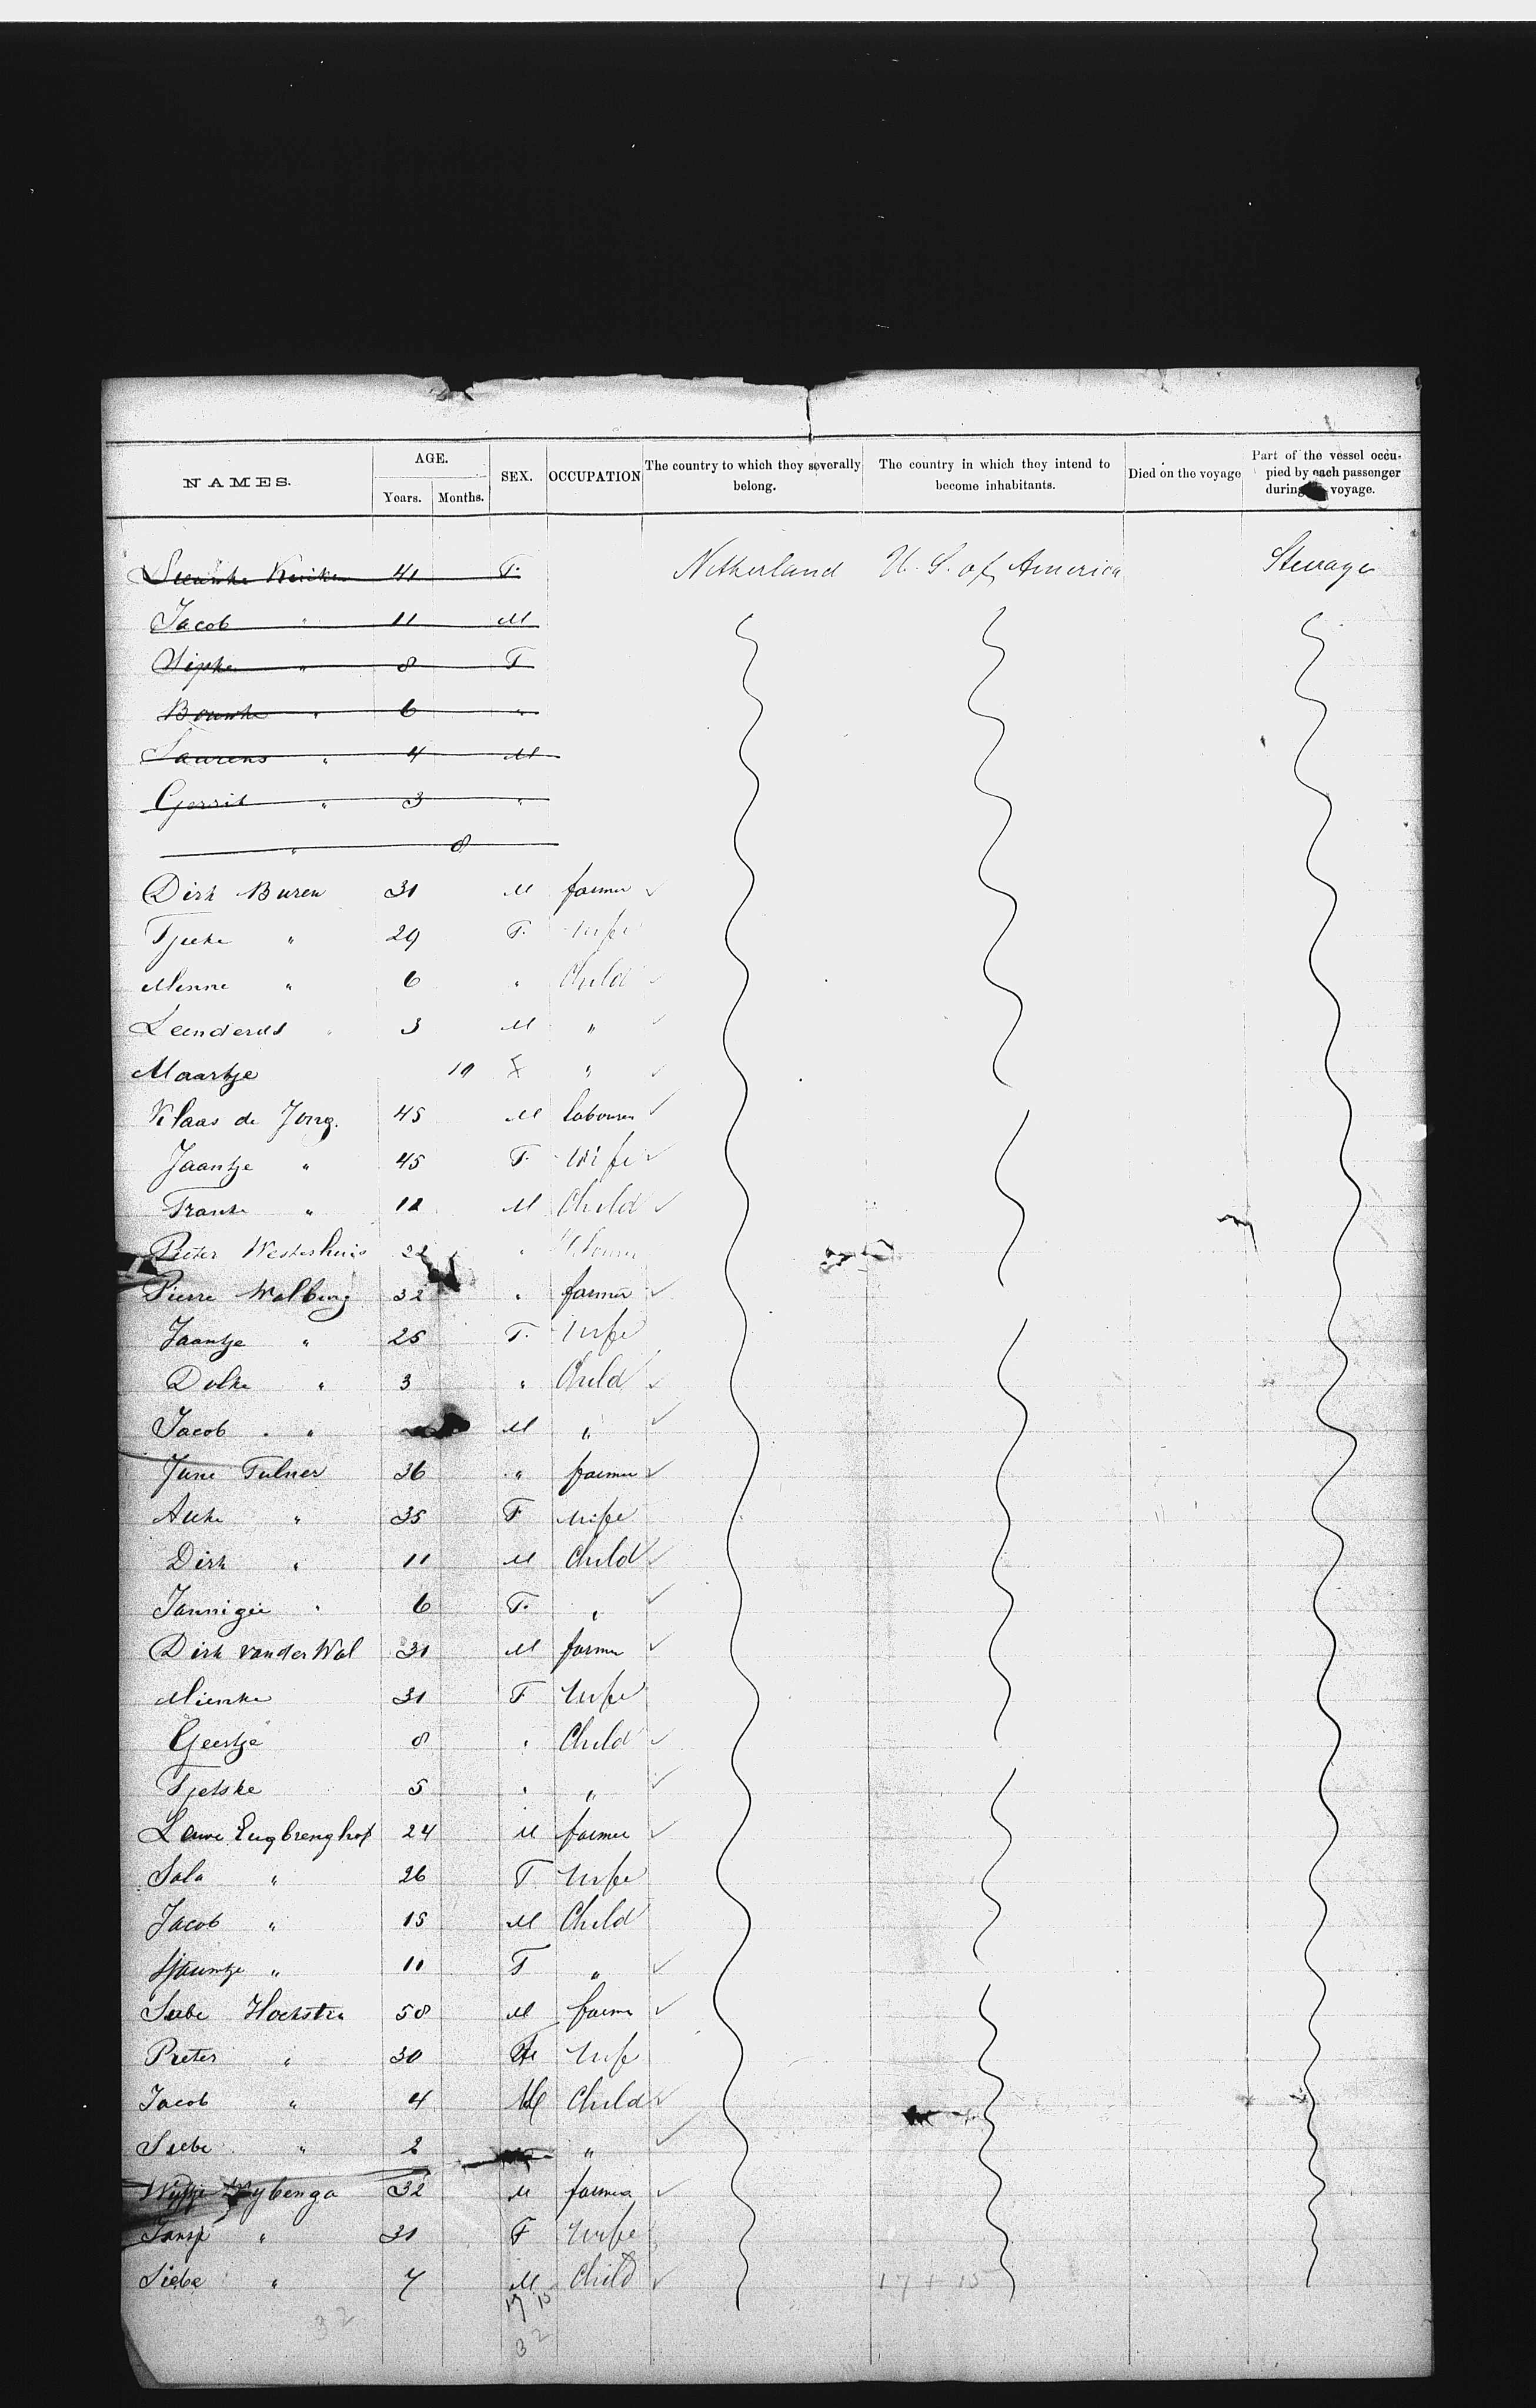 NAMES. AGE. SEX. OCCUPATION The country to which they severally belong. The country in which they intend to become inhabitants. Died on the voyage Part of the vessel occupied by each passenger during voyage.
Years. Months.
41 F. Netherland U. S. of America Steerage
Jacob " 11 M
8 F
Bouwke " 6 "
Laurens " 4 M
Gerrit " 3 "
" 8
Dirk Buren 31 M farmer ✓
Tjeeke " 29 F. Wife
Menne " 6 " Child ✓
Leenderds " 3 M " ✓
Maartje 10 F " ✓
Klaas de Jong. 45 M labourer ✓
Jaantje " 45 F. Wife ✓
Franke " 12 M Child ✓
Pieter Westerhuis 22 "
Pierre Walburg 32 " farmer ✓
Jaantje " 25 F. Wife
Dolke " 3 " Child ✓
Jacob " M " ✓
June Tulner 36 " farmer ✓
Auke " 35 F wife
Dirk " 11 M Child ✓
Jannigie " 6 F. " ✓
Dirk van der Wal 31 M farmer ✓
Mienke 31 F Wife
Geertje " 8 " Child ✓
Tjetske 5 " " ✓
Lauwe Engbrenghof 24 M farmer ✓
Sala " 26 F Wife
Jacob " 15 M Child
" 11 F " ✓
Siebe Hoekstra 58 M farmer ✓
Pieter " 30 Wife
Jacob " 4 M Child ✓
Siebe " 2 " ✓
Wybenga 32 M farmer ✓
Jansje " 31 F Wife
Siebe " 7 M Child ✓
17 15 17 + 15
32 32